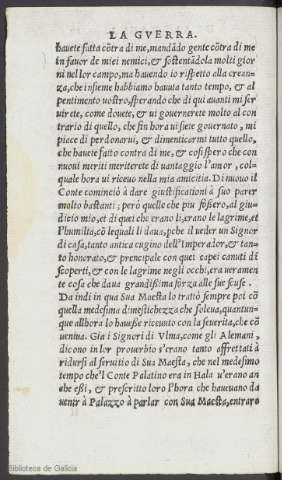 LA GVERRA.
hauete fatta cõtra di me, mandãdo gente cõtra di me
in fauor de miei nemici, & sostentãdola molti gior
ni nel lor campo, ma hauendo io rispetto alla crean-
za, che insieme habbiamo hauuta tanto tempo, & al
pentimento uostro, sperando che di qui auanti mi ser
uirete, come douete, & ui gouernerete molto al con
trario di quello, che fin hora ui siete gouernato, mi
piece di perdonarui, & dimenticarmi tutto quello,
che hauete fatto contra di me, & cosi spero che con
nuoui meriti meriterete di uantaggio l'amor, col-
quale hora ui riceuo nella mia amicitia. Di nuouo il
Conte cominciò à dare giustificationi à suo parer
molto bastanti; però quelle che piu fossero, al giu-
dicio mio, et di quei che erano lì, erano le lagrime, et
l'humiltà, cõ lequali li daua, pche il ueder un Signor
di casa, tanto antica cugino dell'Imperador, & tan-
to honorato, & prencipale con quei capei canuti di
scoperti, & con le lagrime negli occhi, era ueramen
te cosa che daua grandissima forza alle sue scuse.
Da indi in qua Sua Maesta lo trattò sempre poi cõ
quella medesima dimestichezza che soleua, quantun-
que allhora lo hauesse riceuuto con la seuerità, che cõ
uenina. Gia i Signori di Vlma, come gli Alemani,
dicono in lor prouerbio s'erano tanto affrettati à
ridursi al seruitio di Sua Maesta, che nel medesimo
tempo che'l Conte Palatino era in Hala u'erano an
che essi, & prescritto loro l'hora che haueuano da
uenir à Palazzo à parlar con Sua Maesta, entraro
Biblioteca de Galicia